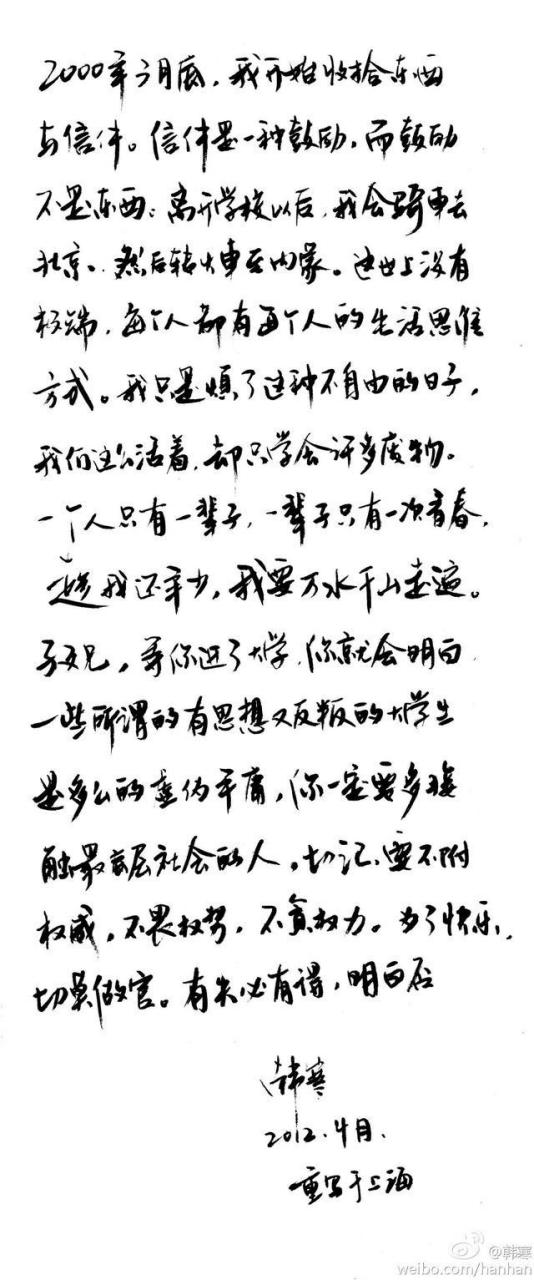 2000年3月底，我开始收拾东西
与信件。信件是一种鼓励，而鼓励
不是东西。离开学校以后，我会骑车去
北京，然后转火车至内蒙。这世上没有
极端，每个人都有每个人的生活思维
方式。我只是烦了这种不自由的日子，
我们这么活着，却只学会许多废物。
一个人只有一辈子，一辈子只有一次青春，
趁我还年少，我要万水千山走遍。
兄，等你进了大学，你就会明白
一些所谓的有思想又反叛的大学生
是多么的虚伪平庸，你一定要多接
触最底层社会的人，切记，要不附
权威，不畏权势，不贪权力。为了快乐，
切莫做官。有失必有得，明白否
韩寒
2012.4月.
重写于上海
@韩寒
weibo.com/hanhan